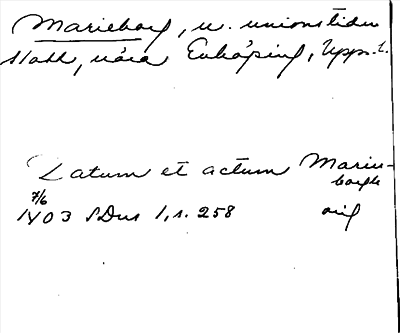 Marieborg, u. unionstiden
slott, nära Enköping, Uppl.
Datum et actum Marie-
borgh
7/6
1403 SDns 1, s. 258
orig